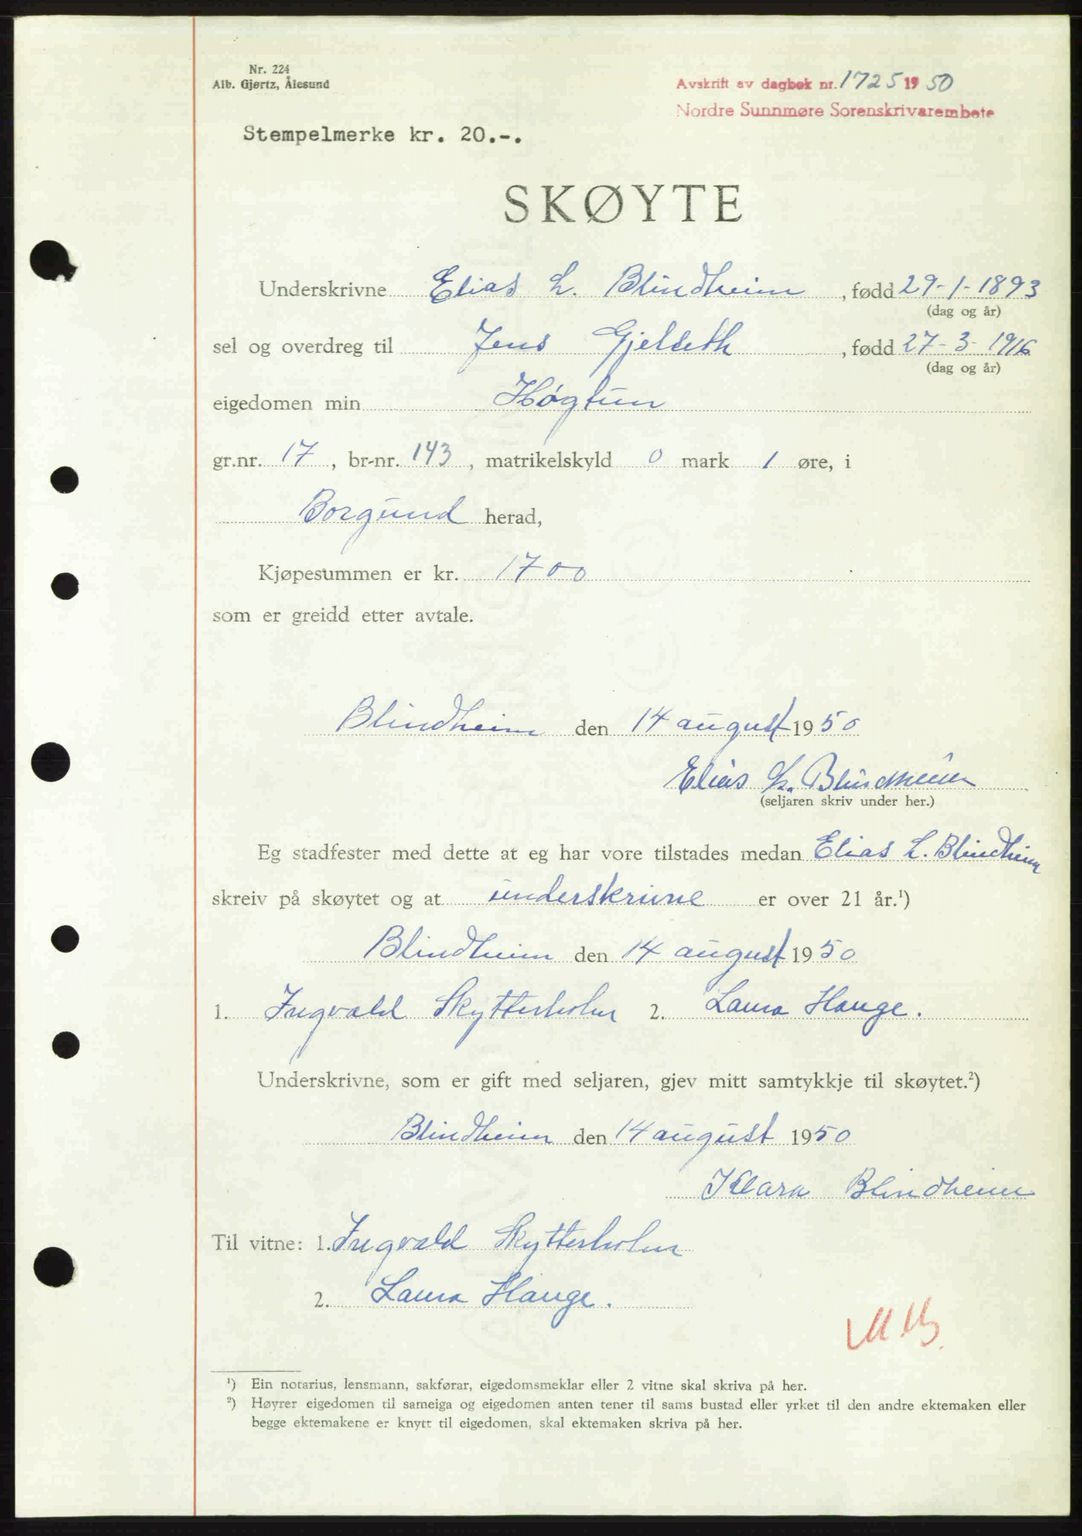 Nr. 224
Alb. Gjørtz, Ålesund
Avskrift av dagbok nr. 1725 1950
Nordre Sunnmøre Sorenskrivarembete
Stempelmerke kr. 20.-.
SKØYTE
Underskrivne Elias L. Blindheim, født 29-1-1893
(dag og år)
sel og overdreg til Jens Gjelseth, født 27-3-1916
(dag og år)
eigedomen min Høgtun
gr.nr. 17, br-nr. 143, matrikelskyld 0 mark 1 øre, i
Borgund herad,
Kjøpesummen er kr. 1700
som er greidd etter avtale.
Blindheim den 14 august 1950
Elias L. Blindheim
(seljaren skriv under her.)
Eg stadfester med dette at eg har vore tilstades medan Elias L. Blindheim
skreiv på skøytet og at underskrivne er over 21 år.¹)
Blindheim den 14 august 1950
1. Ingvald Skytterholm 2. Laura Hauge.
Underskrivne, som er gift med seljaren, gjev mitt samtykkje til skøytet.²)
Blindheim den 14 august 1950
Klara Blindheim
Til vitne: 1. Ingvald Skytterholm
2. Laura Hauge.
¹) Ein notarius, lensmann, sakførar, eigedomsmeklar eller 2 vitne skal skriva på her.
²) Høyrer eigedomen til sameiga og eigedomen anten tener til sams bustad eller yrket til den andre ektemaken eller
begge ektemakene er knytt til eigedomen, skal ektemaken skriva på her.